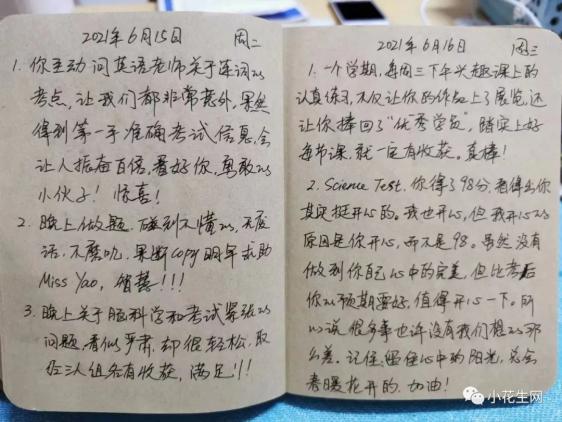 2021年6月15日 周二
1. 你主动问英语老师关于连词的
考点,让我们都非常意外,果然
得到第一手准确考试信息,会
让人振奋百倍,看好你,勇敢的
小伙子!惊喜!
2. 晚上做题,碰到不懂的,无废
话,不磨叽,果断copy明年求助
Miss Yao,智慧!!!
3. 晚上关于脑科学和考试紧张的
问题,看似严肃,却很轻松,取
三人组各有收获,满足!!!
2021年6月16日 周三
1. 一个学期,每周三下午兴趣课上的
认真练习,不仅让你的作品上了展览,还
让你捧回了“优秀学员”,踏实上好
每节课,就一定有收获。真棒!
2. Science Test,你得了98分,看得出你
其实挺开心的。我也开心,但我开心的
原因是你开心,而不是98。虽然没有
做到你自己心中的完美,但比考后
你的预期要好,值得开心一下。所
以说,很多事也许没有我们想的那
么差,记住,留住心中的阳光,总会
春暖花开的,加油!
小花生网